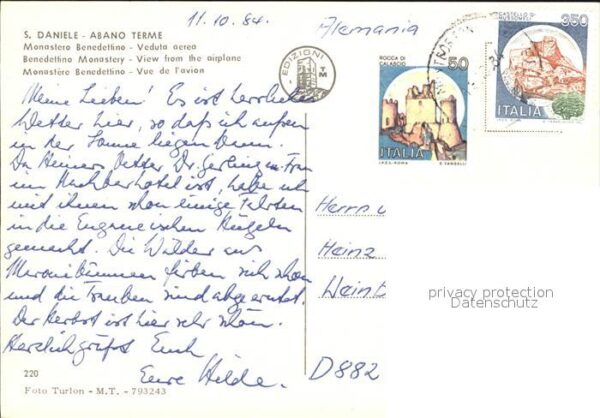 11.10.84.
Alemania
S. DANIELE - ABANO TERME
Monastero Benedettino - Veduta aerea
Benedettine Monastery - View from the airplane
Monastère Benedettino - Vue de l'avion
EDIZIONI TM
Meine Lieben! Es ist herrliches
Wetter hier, so daß ich außen
in der Sonne liegen kann.
Da Heiners Vetter, Dr. Gerling u. Frau
im Nachbarhotel ist, habe ich
mit ihnen schon einige Fahrten
in die Euganeischen Hügeln
gemacht. Die Wälder aus
Maronibäumen färben sich schon
und die Trauben sind abgeerntet.
Der Herbst ist hier sehr schön.
Herzlich grüßt Euch
Eure Hilde.
220
Foto Turlon - M.T. - 793243
ROCCA DI
CALASCIO
50
ITALIA
350
ITALIA
Herrn u
Heinz
Weinb
D 882
privacy protection
Datenschutz